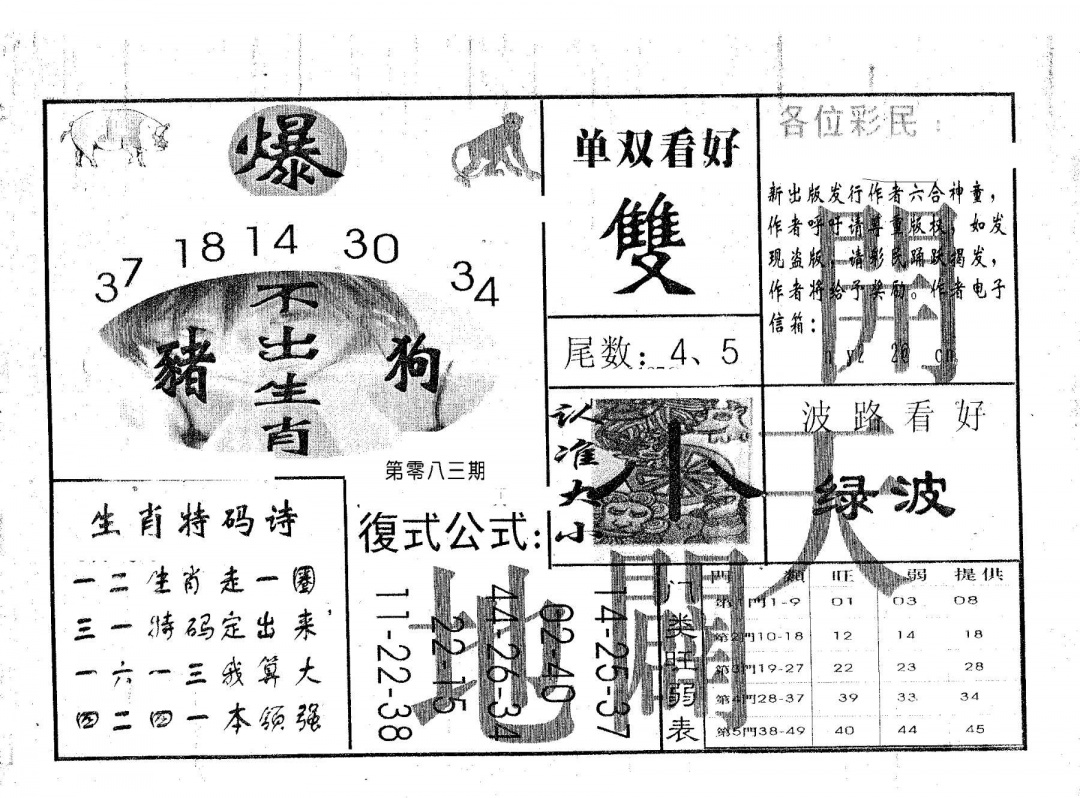 爆
37 18 14 30 34
不出生肖
豬
狗
第零八三期
单双看好
雙
尾数：4、5
各位彩民：
新出版发行作者六合神童，
作者呼吁请尊重版权，如发
现盗版，请彩民踊跃揭发，
作者将给予奖励。作者电子
信箱：
认准大小
小
波路看好
绿波
生肖特码诗
一二生肖走一圈
三一特码定出来，
一六一三我算大
四二四一本领强
復式公式：
11-22-38
22-15
44-26-34
02-40
14-25-37
门类旺弱表
門類 旺 弱 提供
第1門1-9 01 03 08
第2門10-18 12 14 18
第3門19-27 22 23 28
第4門28-37 39 33 34
第5門38-49 40 44 45
天地
開